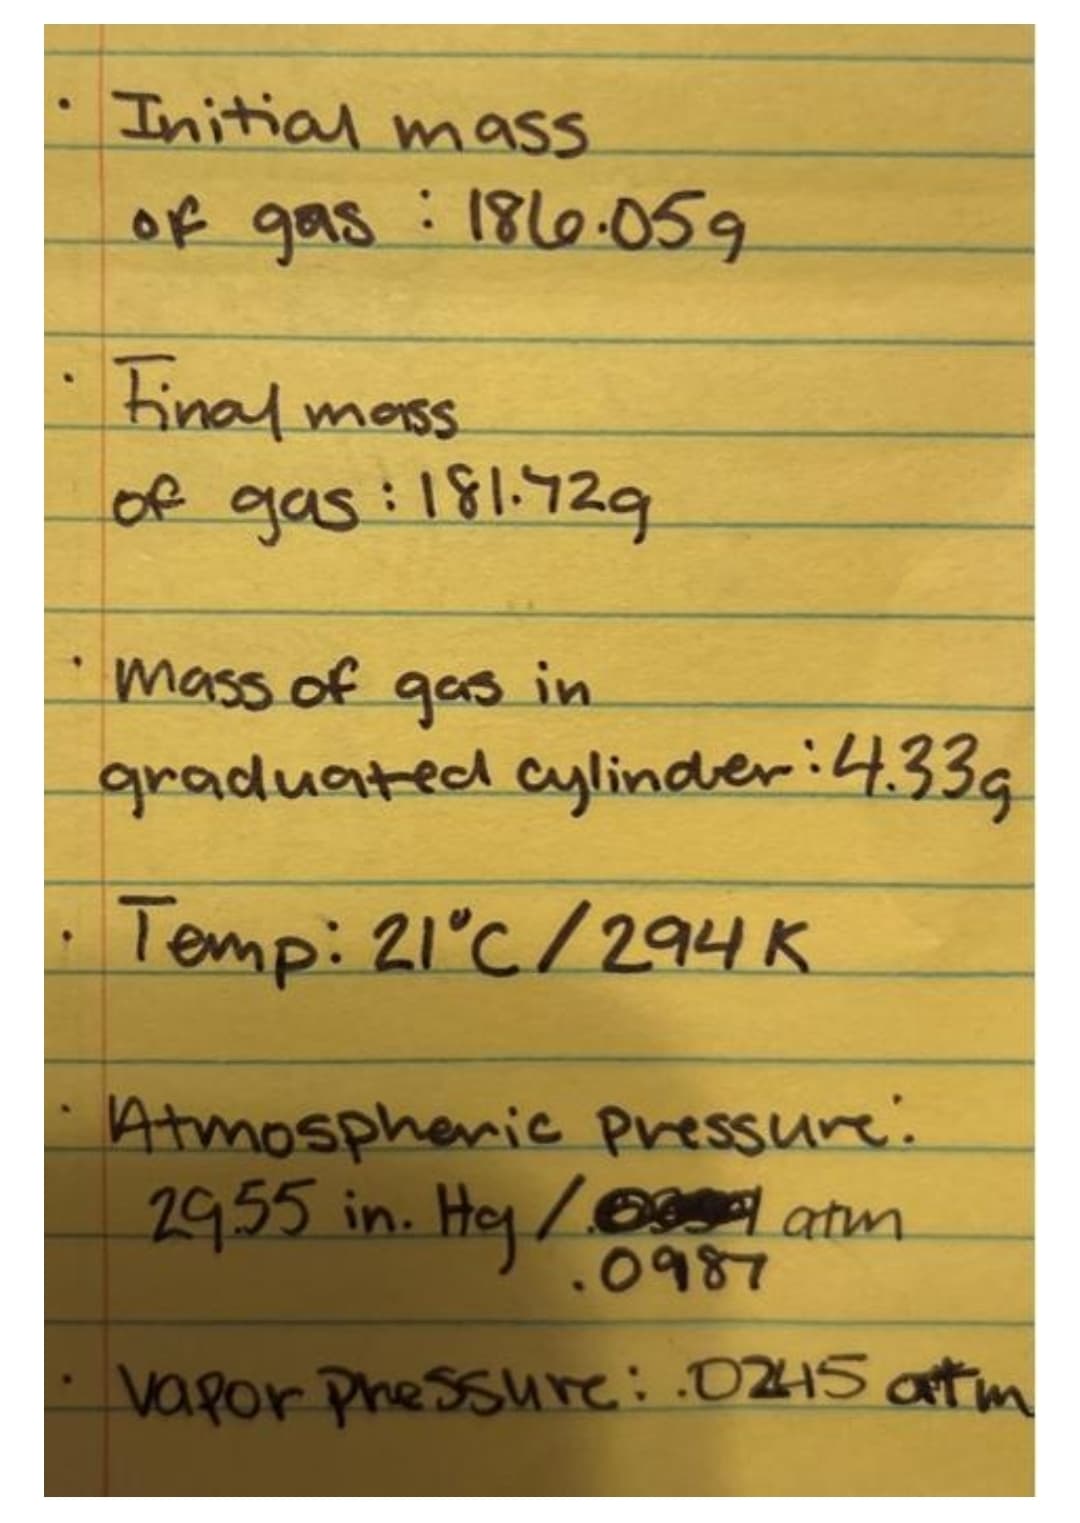 · Initial mass
of gas : 186.05g
· Final mass
of gas : 181.72g
· Mass of gas in
graduated cylinder : 4.33g
· Temp: 21°C / 294 K
· Atmospheric pressure:
29.55 in. Hg / atm
.0987
· Vapor pressure: .0245 atm